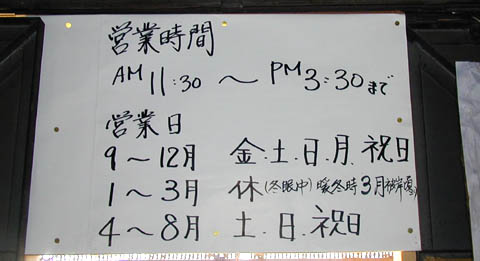 営業時間
AM 11:30 〜 PM 3:30 まで
営業日
9〜12月 金.土.日.月.祝日
1〜3月 休(冬眠中)暖冬時3月
4〜8月 土.日.祝日